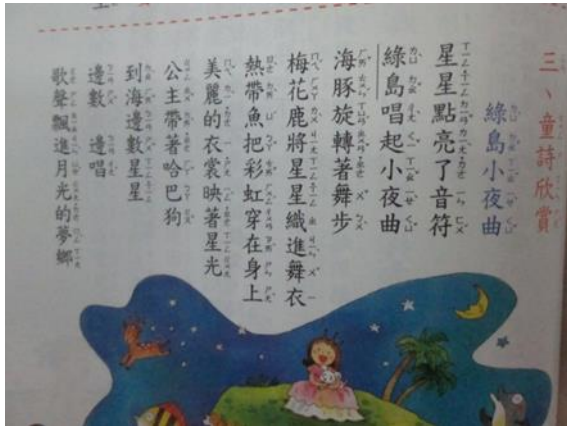 三、童詩欣賞
綠島小夜曲
星星點亮了音符
綠島唱起小夜曲
海豚旋轉著舞步
梅花鹿將星星織進舞衣
熱帶魚把彩虹穿在身上
美麗的衣裳映著星光
公主帶著哈巴狗
到海邊數星星
邊數 邊唱
歌聲飄進月光的夢鄉